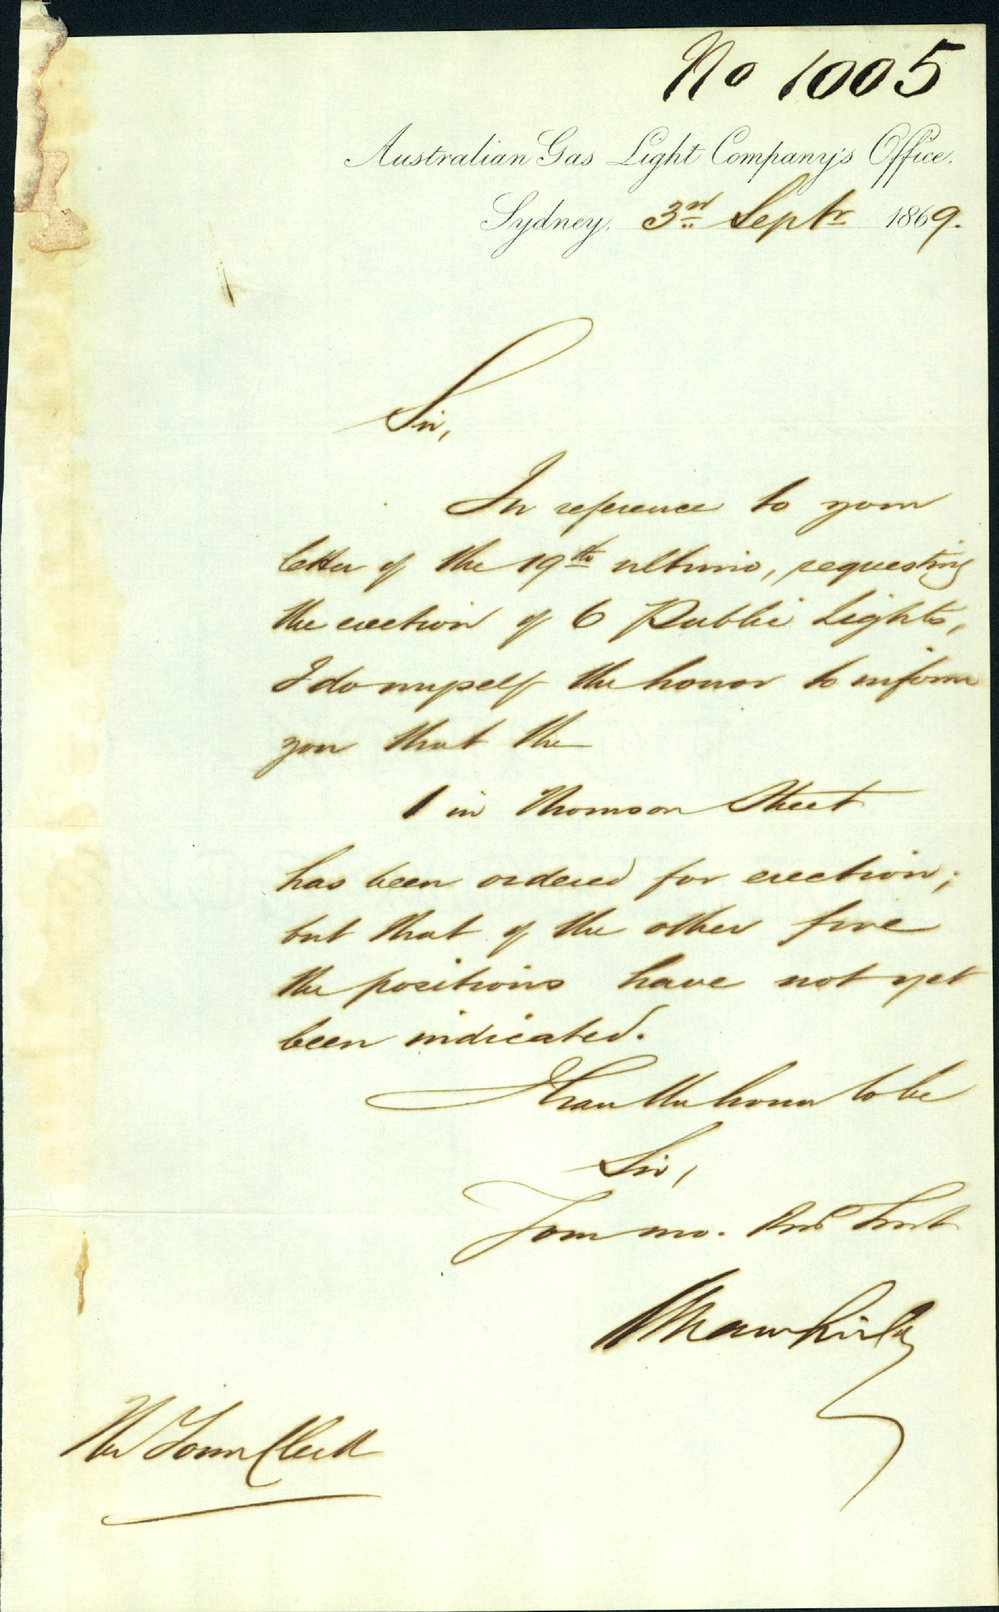 No 1005
Australian Gas Light Company's Office.
Sydney, 3rd Septr 1869.
Sir,
In reference to your
letter of the 19th ultimo, requesting
the erection of 6 Public Lights,
I do myself the honor to inform
you that the
1 in Thomson Street
has been ordered for erection;
but that of the other five
the positions have not yet
been indicated.
I have the honor to be
Sir,
Your mo. Obt Servt
The Town Clerk